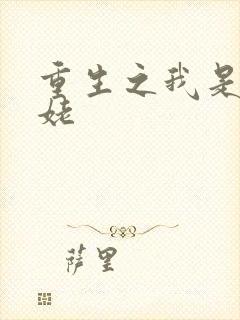 重生之我是
姥
萨里